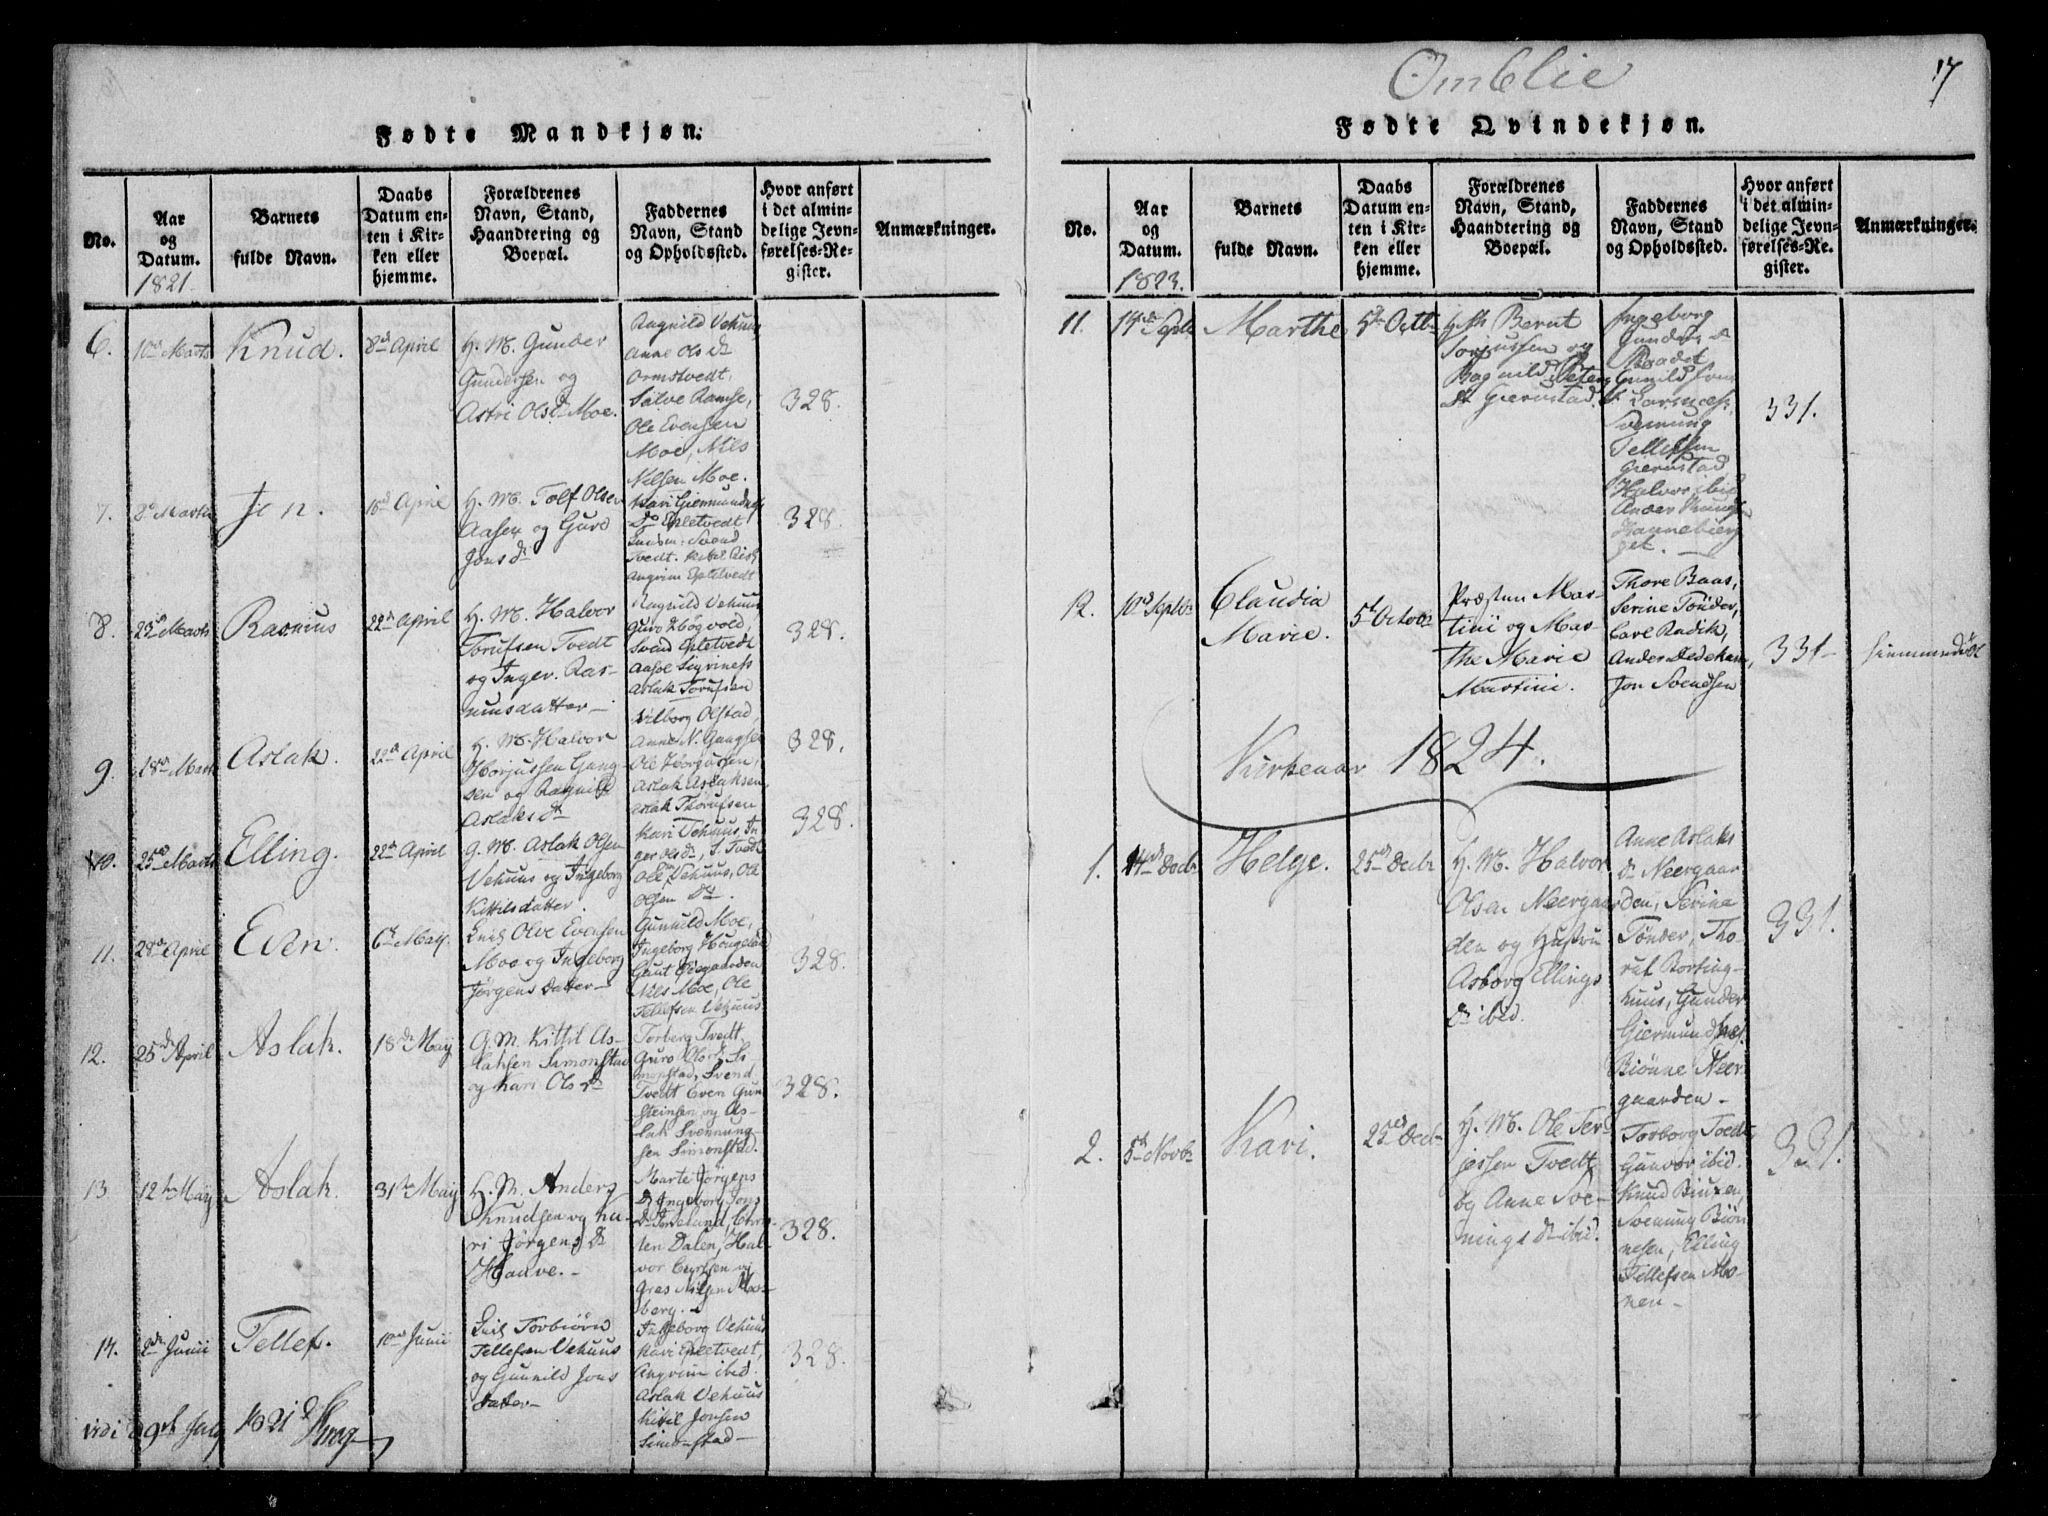 Fødte Mandkjøn.
No.
Aar og Datum.
1821
Barnets fulde Navn.
Daabs Datum enten i Kirken eller hjemme.
Forældrenes Navn, Stand, Haandtering og Boepæl.
Faddernes Navn, Stand og Opholdssted.
Hvor anført i det almindelige Jevnførelses-Register.
Anmærkninger.
6.
10d Marts
Knud.
8d April
H. M. Gunder
Gundersen og
Astri Olsd. Moe.
Ragnild Vehuus
Anne Olsdr
Ormstvedt,
Salve Ramse,
Ole Evensen
Moe, Nils
Nilsen Moe.
328.
7.
8d Marts
Jon.
16d April
H. M. Tolf Olsen
Aasen og Guro
Jonsdr
Kari Giermunds
dr Epletvedt
Svend
Tvedt.
Angrim Epletvedt
328.
8.
23d Marts
Rasmus
22d April
H. M. Halvor
Torufsen Tvedt
og Inger. Ras-
musdatter
Ragnild Vehuus,
Guro Høgvold,
Svend Epletvedt
Aasoe
Aslak Torufsen
328.
9.
18d Marts
Aslak.
22d April
H. M. Halvor
Gang-
sen og Ragnild
Aslaksdr
Vilborg Olstad,
Anne N. Gangsen
Ole
Aslak Aslaksen
Aslak Thorufsen
328.
10.
25d Marts
Elling.
22d April
G. M. Aslak Olsen
Vehuus og Ingeborg
Kittilsdatter.
Kari Vehuus, In
ger Olsdr, S. Tvedt
Ole Vehuus, Ole
Olsen Do.
328.
11.
28d April
Even.
6t May.
Olve Evensen
Moe og Ingeborg
Jørgensdatter
Gunnild Moe,
Ingeborg
Gaut
Nils Moe, Ole
Tellefsen Vehuus
328.
12.
25d April
Aslak.
18d May
G. M. Kittil As-
laksen Simonstad
og Kari Olsdr
Torberg Tvedt
Guro Olsdr Si
monstad, Svend
Tvedt Even Gun
steinsen og As-
lak Svennung-
sen Simonstad.
328.
13
12t May
Aslak.
31t May
H. M. Anders
Knudsen og Ka-
ri Jørgensdr
Haave.
Marte Jørgens
dr Ingeborg Jons
dr
ten Dalen, Hal-
vor
berg.
328.
14.
2d Junii
Tellef.
10d Junii
Torbiørn
Tellefsen Vehuus
og Gunnild Jons
datter
Ingeborg Vehuus
Kari Epletvedt,
Angrim ibid.
Aslak Vehuus
Kitil Jonsen
Simonstad
328.
vidi 9t July 1821
Omblie
17
Fødte Qvindekjøn.
No.
Aar og Datum.
1823.
Barnets fulde Navn.
Daabs Datum enten i Kirken eller hjemme.
Forældrenes Navn, Stand, Haandtering og Boepæl.
Faddernes Navn, Stand og Opholdssted.
Hvor anført i det almindelige Jevnførelses-Register.
Anmærkninger.
11.
Marthe
5t Octbr
Bernt
og
Ragnild Peters
dr Gierustad.
Ingeborg
Gunders dr
Gunild
Svennung
Tellefsen
Gierustad
Halvor ibid
Anders
331.
12.
10d Septbr
Claudia
Marie.
5t Octobr
Præsten Mar-
tini og Mar-
the Marie
Martini.
Thore Baas,
Serine Tønder,
Carl Radik,
Anders Dedekam,
Jon Svendsen
331
hiemmedøbt
Kirkeaar 1824.
1.
14d Decbr
Helge.
25d Decbr
H. M. Halvor
Olsen Neergaar
den og Hustru
Asborg Ellings
dr ibid.
Anne Aslaks
dr Neergaar
den, Serine
Tønder, Tho-
huus, Gunder
Giermundsnes.
Biønne Neer-
gaarden
331.
2.
5t Novbr
Kari.
Decbr
H. M. Ole Ter-
jessen Tvedt
og Anne Sve-
nings dr ibid.
Torborg Tvedt,
Gunvor ibid.
Knud
Svenung Biøn
nesen, Elling
Tellefsen Mo-
nen
331.